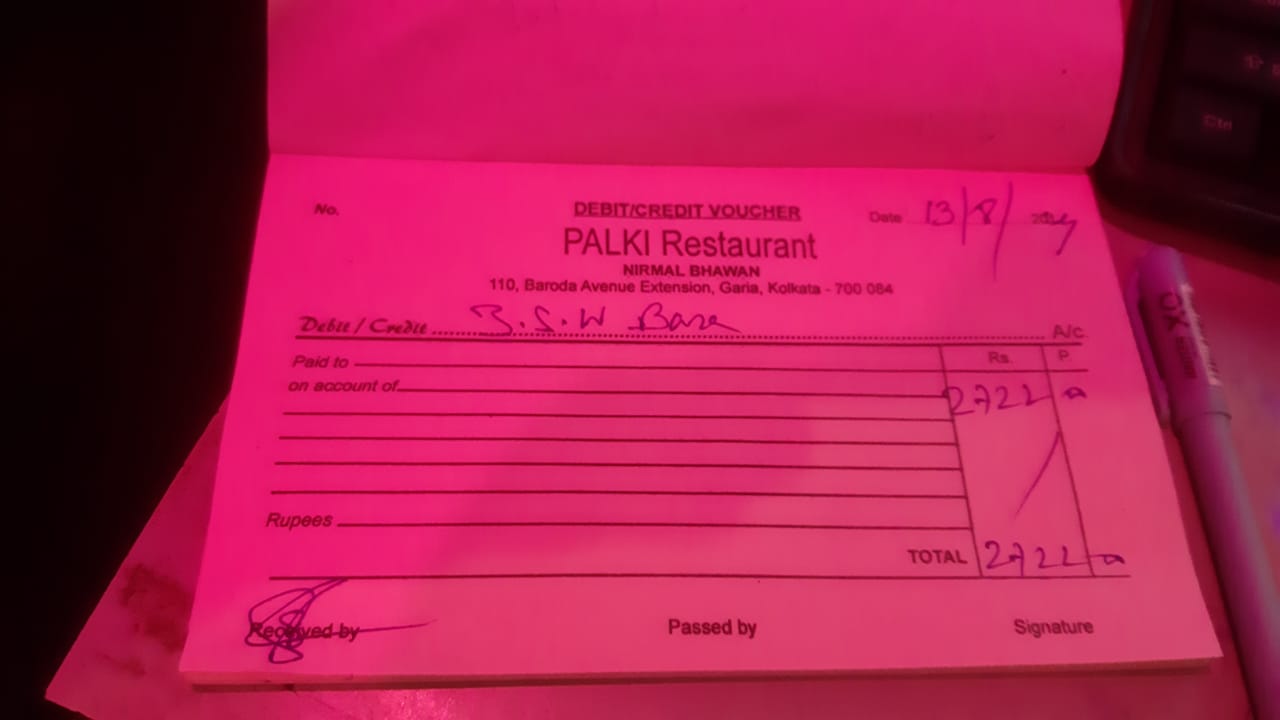 No.
DEBIT/CREDIT VOUCHER
Date 13/8/2024
PALKI Restaurant
NIRMAL BHAWAN
110, Baroda Avenue Extension, Garia, Kolkata - 700 084
Debit / Credit B.S.W A/c
Paid to Rs. P.
on account of 2722
Rupees
TOTAL 2722
Received by Passed by Signature
Ctrl
OK